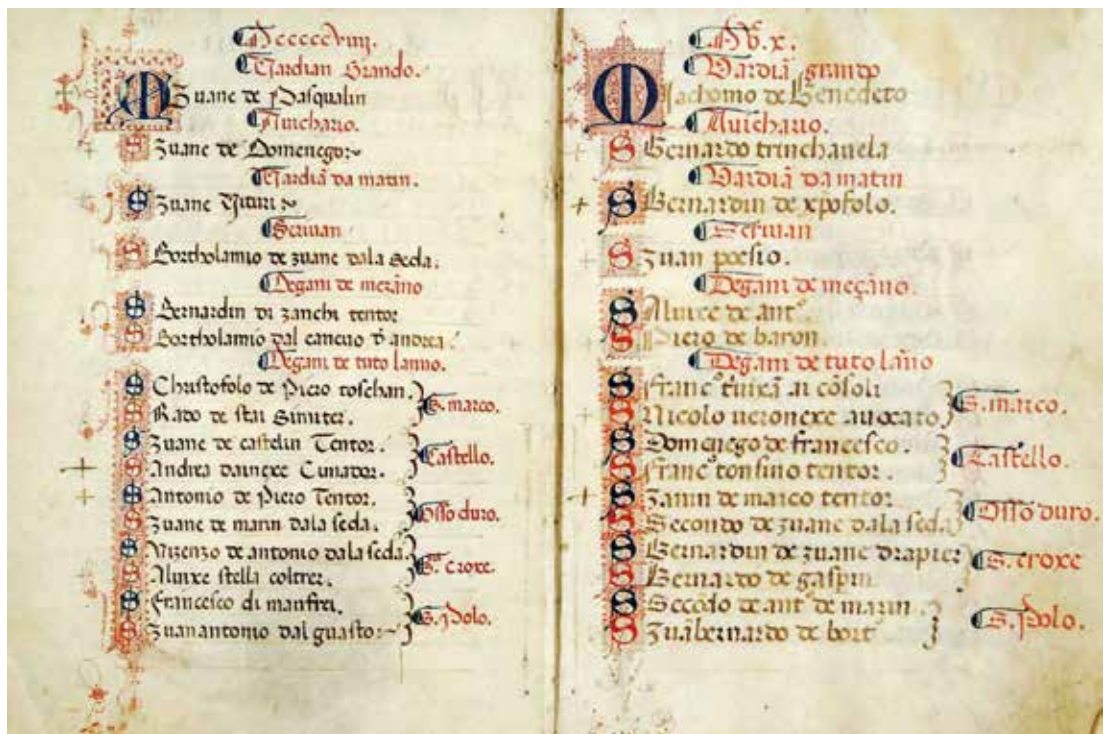 Mcccccviiij.
Gardian Grando.
M Zuane de Pasqualin
Auichario.
S Zuane de Domenego:~
Gardiã da matin.
S Zuane Vituri:~
Scriuan
S Bortholamio de zuane dala Seda.
Degani de mezãno
S Bernardin di zanchi tentor
S Bortholamio dal andrea.
Degani de tuto lanno.
S Christofolo de Piero toschan.
S Rado de stai
S. marco.
S Zuane de castelin Tentor.
S Andrea Cimador.
Castello.
S Antonio de Piero Tentor.
S Zuane de marin dala seda.
Osso duro.
S Vizenzo de antonio dala seda.
S Aluixe stella coltrer.
S. croxe.
S Francesco di manfrei.
S Zuanantonio dal guasto:~
S. Polo.
MV.x.
Vardiã grando
M Jachomo de Benedeto
Auichario.
S Bernardo trinchauela
Vardiã da matin
S Bernardin de xpofolo.
Scriuan
S Zuan poesio.
Degani de meçãno.
S Aluixe de antº
S Piero de baron.
Degani de tuto lãno
S Francº ai cõsoli
S Nicolo ueronexe auocato
S. marco.
S Domenego de francesco.
S Francº tonsino tentor.
Castello.
S Zanin de marco tentor.
S Secondo de zuane dala seda
Osso duro.
S Bernardin de zuane drapier
S Bernardo de gaspin
S. croxe
S Secõdo de antº de marin.
S Zuãbernardo de bort
S. Polo.